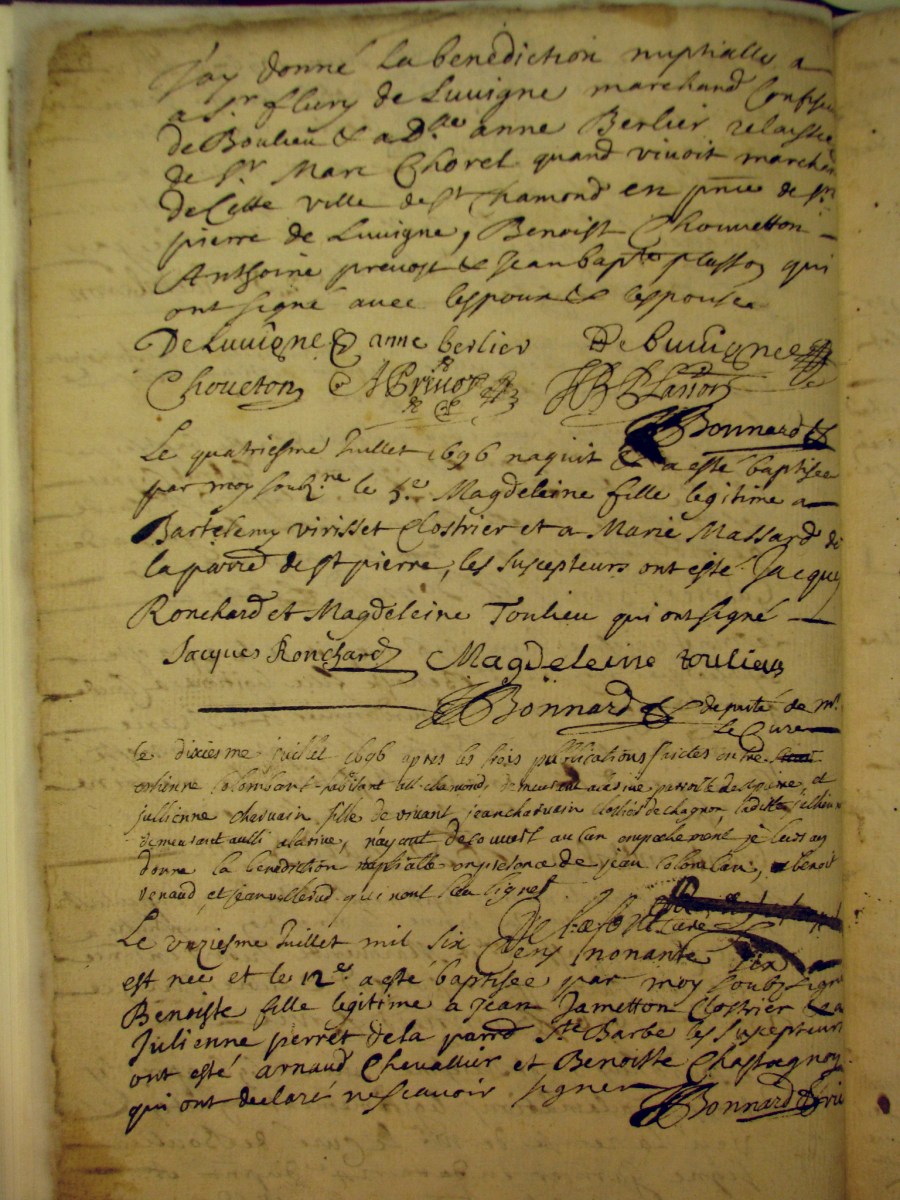 J'ay donné la benediction nuptialle a
a Sr fleury de Luvigne marchand
de Boulieu & a Dlle anne Berlier relaissée
de Sr Marc Chorel quand vivoit marchand
de Cette ville de St Chamond en pnce de Sr
pierre de Luvigne, Benoist Chouvetton
Anthoine prevost & Jean bapte plasson qui
ont signé avec lespoux & lespouse
De Luvigne anne berlier De Luvigne
Choveton A Prevost JB Plasson
Bonnard
Le quatriesme Juillet 1696 naquit & a esté baptisée
par moy soubne le 5e Magdeleine fille legitime a
Bartelemy virisset Clostrier et a Marie Massard de
la parre de St pierre, les suscepteurs ont esté Jacques
Ronchard et Magdeleine Toulieu qui ont signé
Jacques Ronchard Magdeleine toulieu
Bonnard deputé de Mr
Le Curé
le dixiesme juillet 1696 apres les trois publications faictes entre
estienne colombant habitant a St chamond, demeurant a parroisse de et
jullienne charvain fille de vivant jean charvain clostrier de chagnon, laditte jullienne
demeurant aussi n'ayant découvert aucun empeschement je leur ay
donne la benediction nuptialle en presence de jean colomban, benoit
venaud, et jean qui n'ont sceu signer
Curé
Le unziesme Juillet mil six cens nonante six
est nee et le 12e a esté baptisée par moy soubsigné
Benoiste fille legitime a Jean Jametton Clostrier & a
Julienne perret de la parre Ste Barbe les susepteurs
ont esté arnaud Chevallier et Benoiste Chastagnon
qui ont declaré ne scavoir signer Bonnard